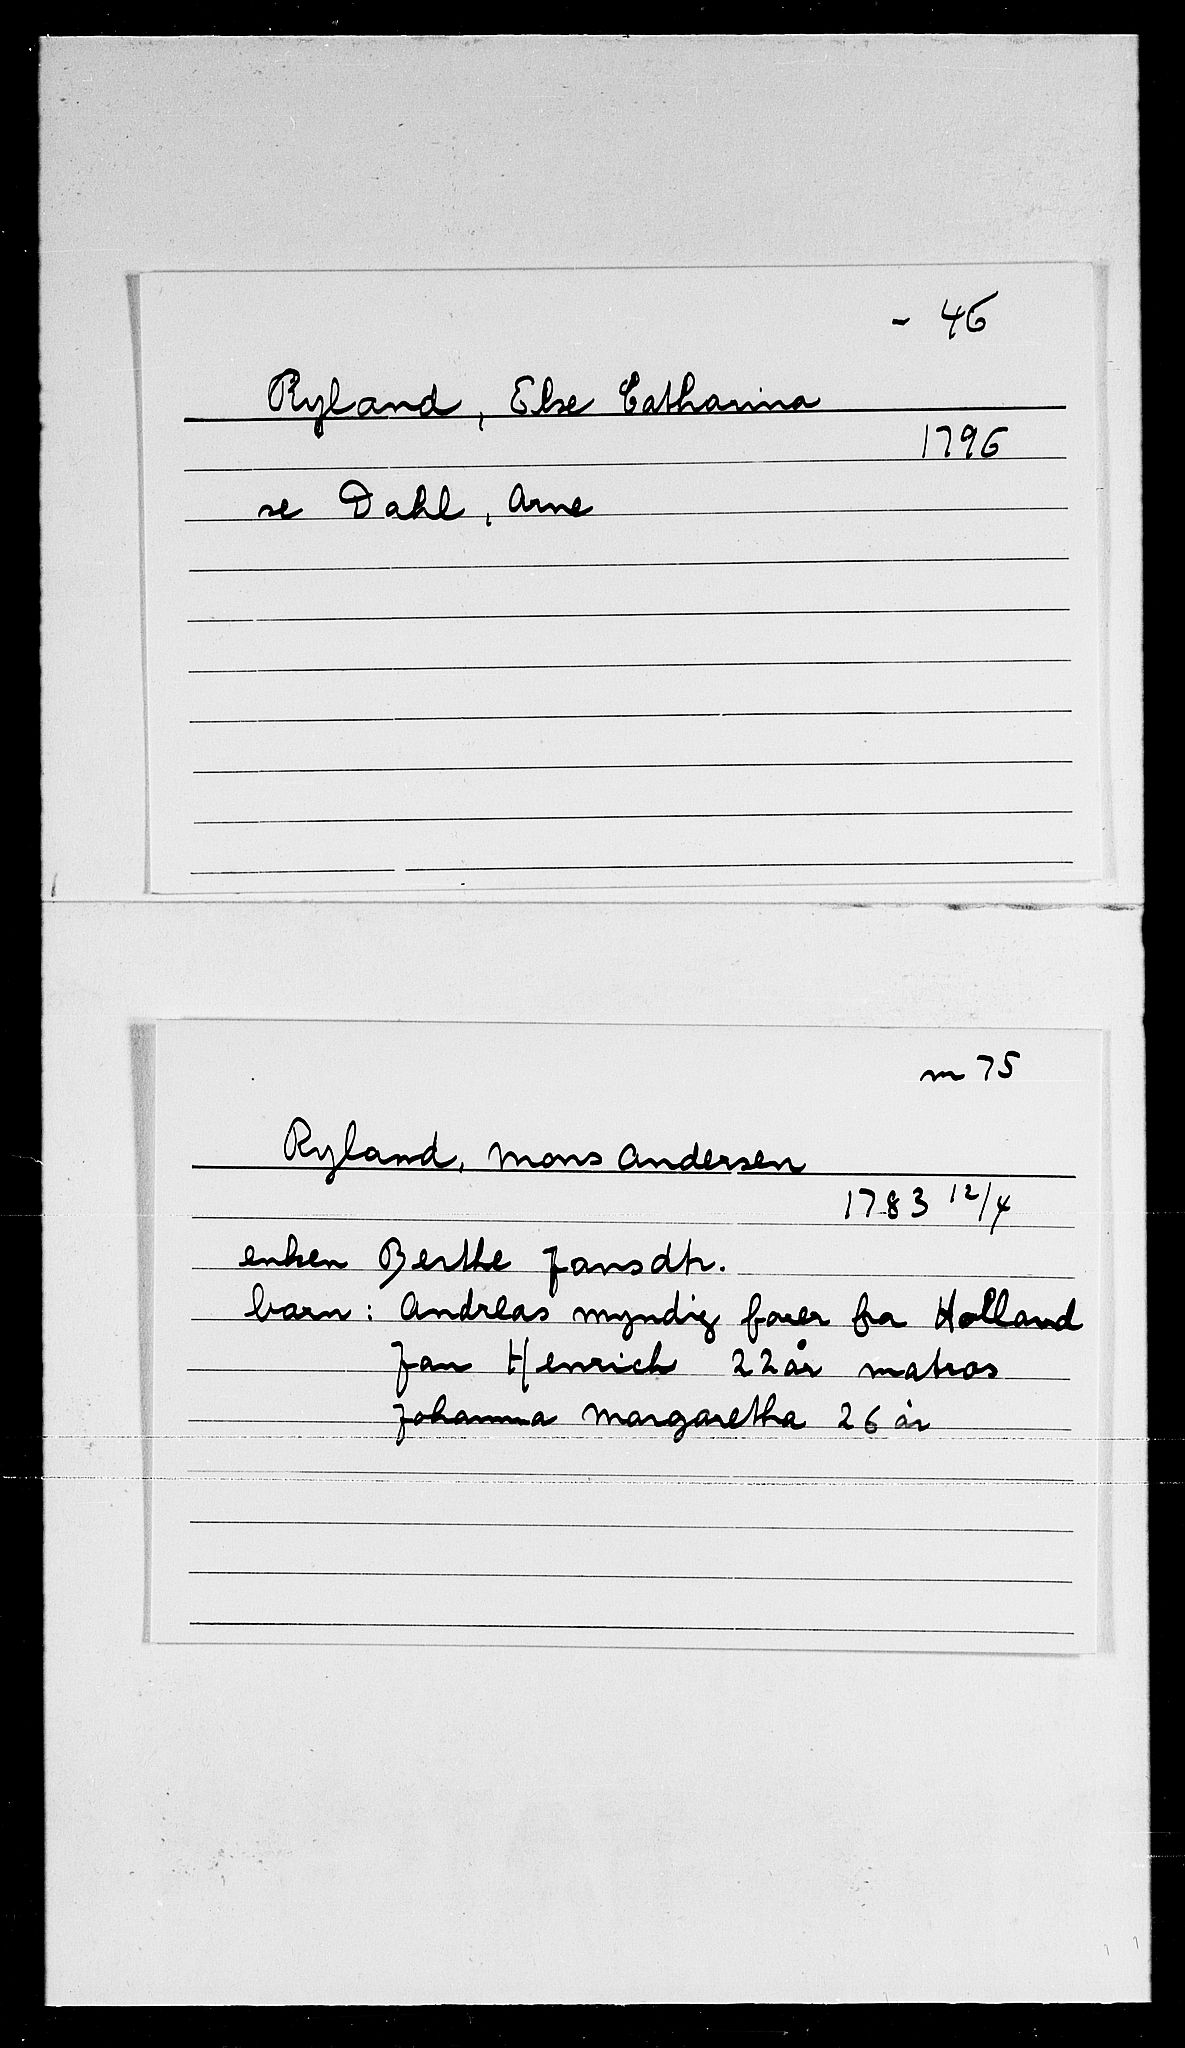 - 46
Ryland, Else Catharina
1796
se Dahl, Arne
m 75
Ryland, Mons Andersen
1783 12/4
enken Berthe Jansdtr.
barn: Andreas myndig farer fra Holland
Jan Henrich 22 år matros
Johanna Margaretha 26 år